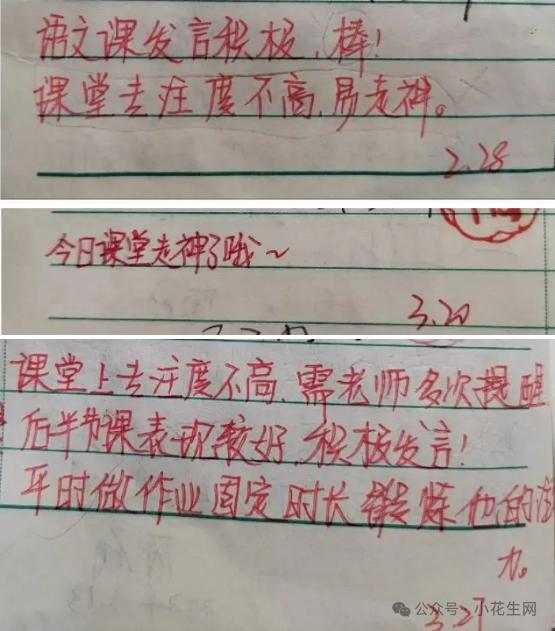 语文课发言积极，棒！
课堂专注度不高，易走神。
2.28
今日课堂走神了哦～
3.20
课堂上专注度不高，需老师多次提醒
后半节课表现较好，积极发言！
平时做作业固定时长锻炼他的注
力。
3.27
公众号·小花生网